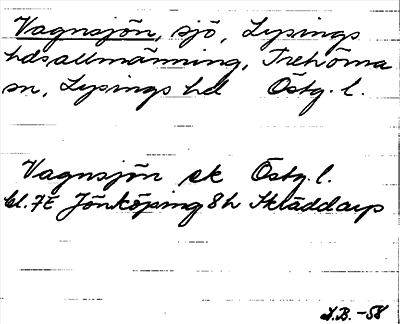 Vagnsjön, sjö, Lysings
hdsallmänning, Trehörna
sn, Lysings hd Östg. l.
Vagnsjön ek Östg. l.
bl. 7E Jönköping 8h Skräddarp
I.B. -58